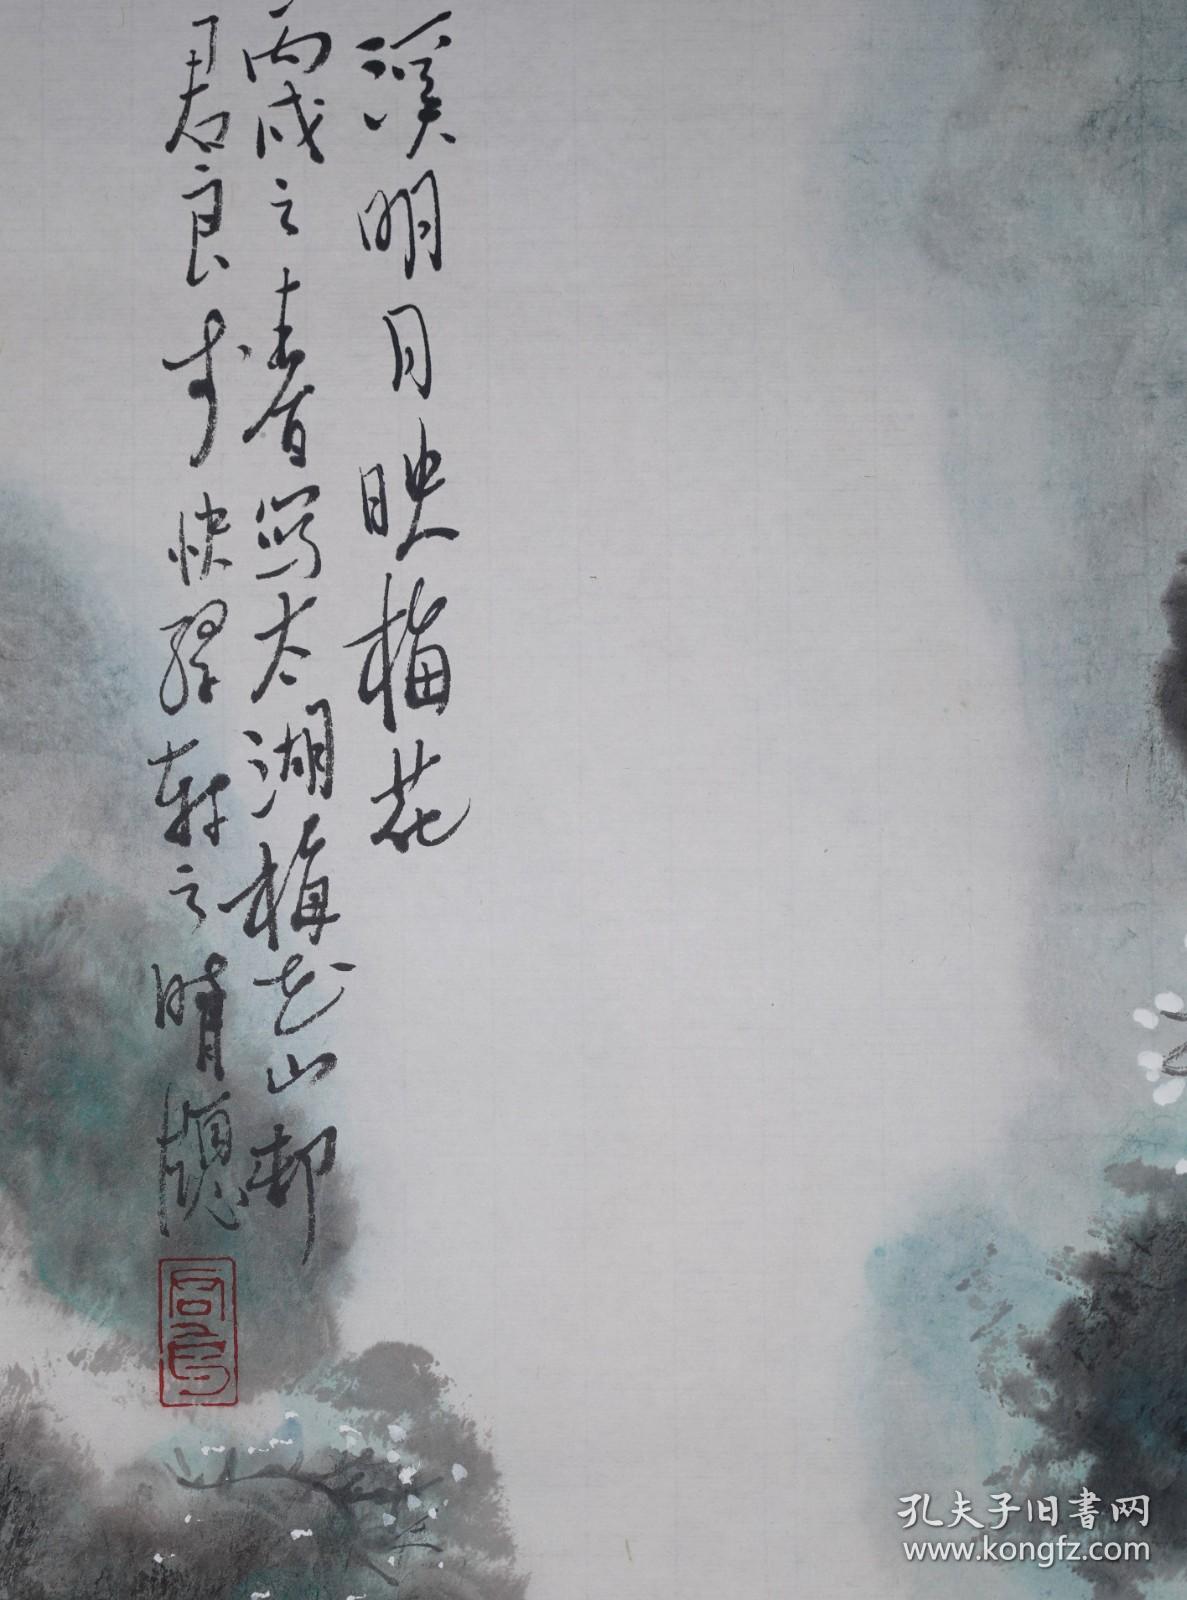 溪明月映梅花
丙戌之春写太湖梅花山郡
君良于快绿轩之晴窗
君良
孔夫子旧書网
www.kongfz.com